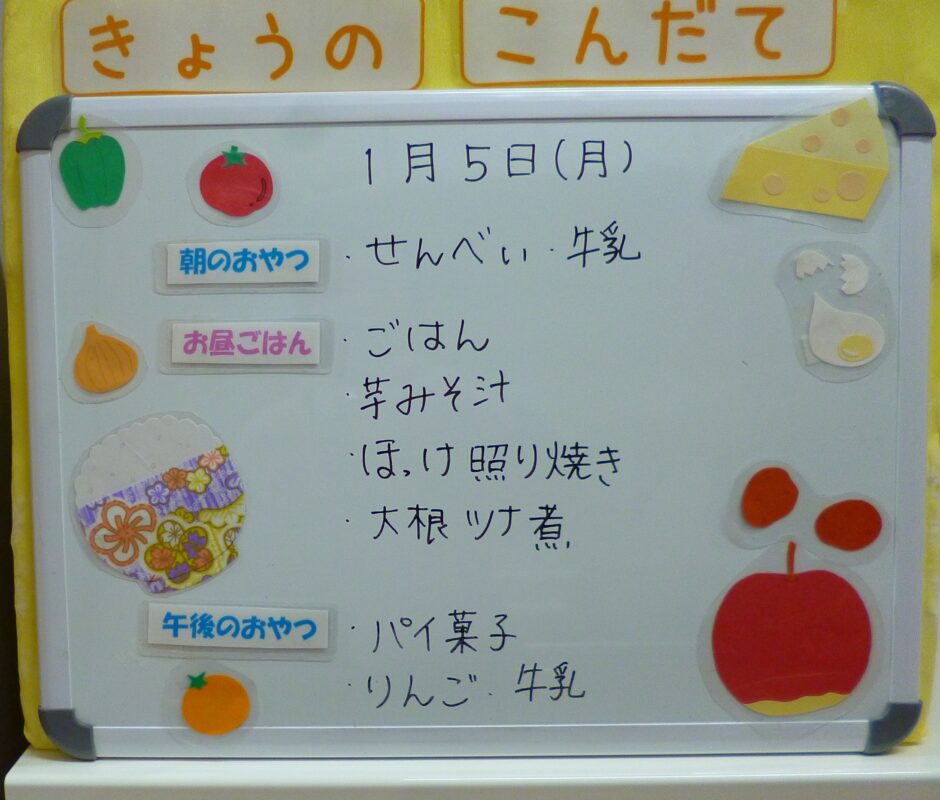 きょうの こんだて
1月5日(月)
朝のおやつ ・せんべい・牛乳
お昼ごはん ・ごはん
・芋みそ汁
・ほっけ照り焼き
・大根ツナ煮
午後のおやつ ・パイ菓子
・りんご・牛乳